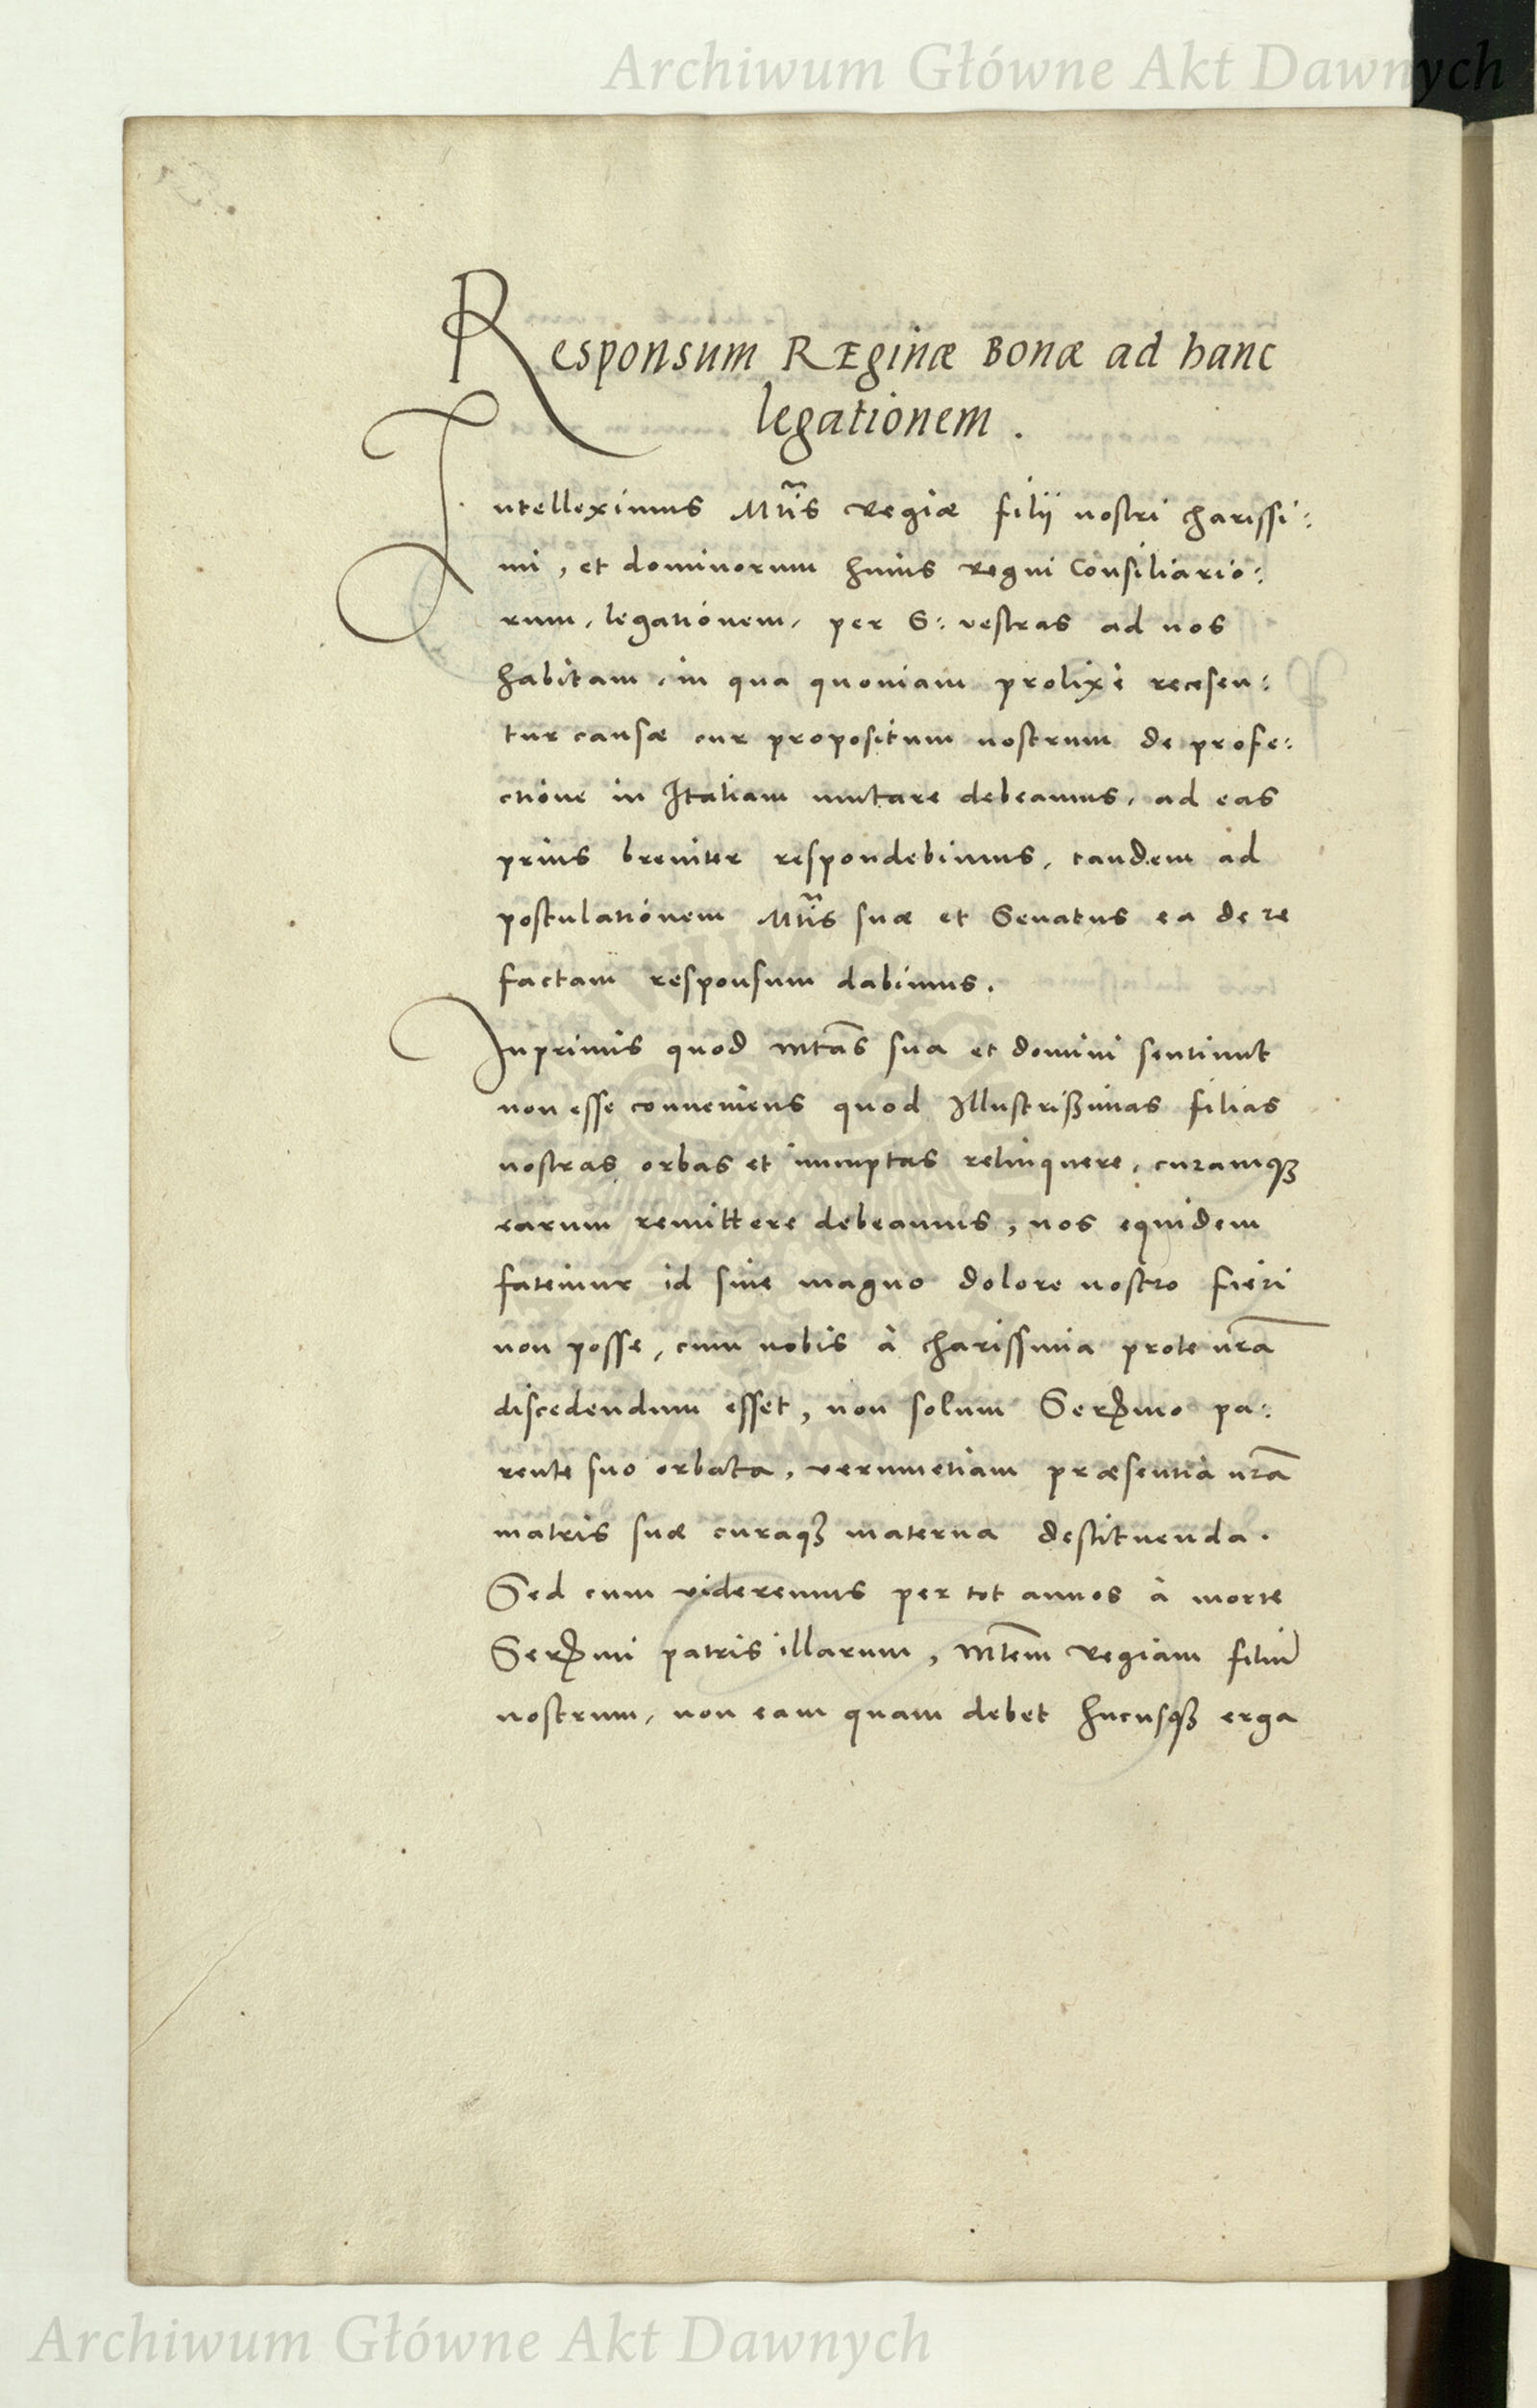 Archiwum Główne Akt Dawnych
Responsum REginæ Bonæ ad hanc
legationem.
Intelleximus Mtis Regiæ filij nostri charissi:
mi, et dominorum huius regni Consiliario:
rum, legationem, per S: vestras ad nos
habitam, in qua quoniam prolixè recesen:
tur causæ cur propositum nostrum de profe:
ctione in Italiam mutare debeamus, ad eas
prius breviter respondebimus, tandem ad
postulationem Mtis suæ et Senatus ea de re
factam responsum dabimus.
Inprimis quod Mtas sua et domini sentiunt
non esse conveniens quod Illustrißimas filias
nostras orbas et innuptas relinquere, curamqꝫ
earum remittere debeamus, nos equidem
fatemur id sine magno dolore nostro fieri
non posse, cum nobis à charissima prole nr̃a
discedendum esset, non solum Serꝫmo pa:
rente suo orbata, verumetiam præsentia nr̃a
matris suæ curaqꝫ materna destituenda.
Sed cum videremus per tot annos à morte
Serꝫmi patris illarum, Mtem Regiam filiũ
nostrum, non eam quam debet hucusqꝫ erga
Archiwum Główne Akt Dawnych